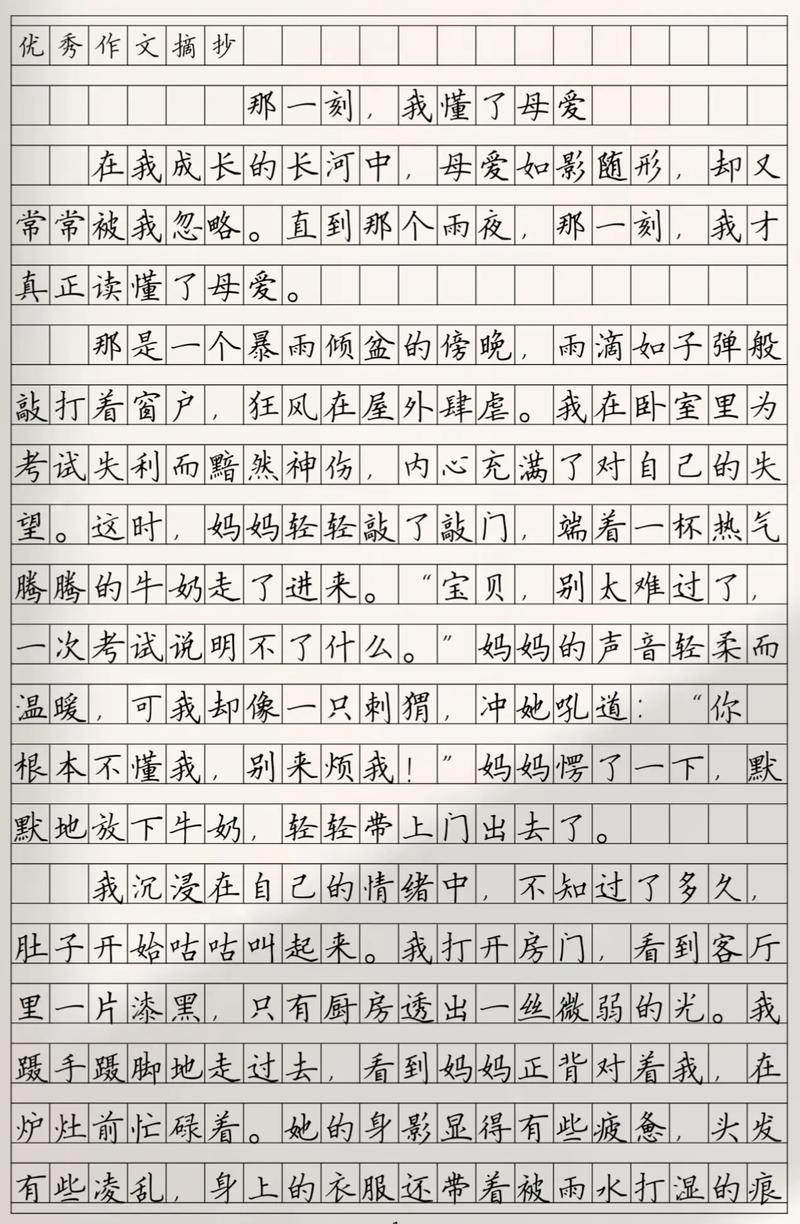 优秀作文摘抄
那一刻，我懂了母爱
在我成长的长河中，母爱如影随形，却又
常常被我忽略。直到那个雨夜，那一刻，我才
真正读懂了母爱。
那是一个暴雨倾盆的傍晚，雨滴如子弹般
敲打着窗户，狂风在屋外肆虐。我在卧室里为
考试失利而黯然神伤，内心充满了对自己的失
望。这时，妈妈轻轻敲了敲门，端着一杯热气
腾腾的牛奶走了进来。“宝贝，别太难过了，
一次考试说明不了什么。”妈妈的声音轻柔而
温暖，可我却像一只刺猬，冲她吼道：“你
根本不懂我，别来烦我！”妈妈愣了一下，默
默地放下牛奶，轻轻带上门出去了。
我沉浸在自己的情绪中，不知过了多久，
肚子开始咕咕叫起来。我打开房门，看到客厅
里一片漆黑，只有厨房透出一丝微弱的光。我
蹑手蹑脚地走过去，看到妈妈正背对着我，在
炉灶前忙碌着。她的身影显得有些疲惫，头发
有些凌乱，身上的衣服还带着被雨水打湿的痕